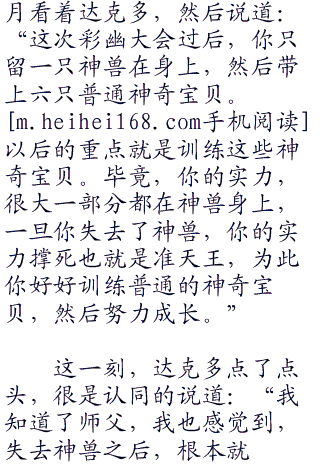 月看着达克多，然后说道：
“这次彩幽大会过后，你只
留一只神兽在身上，然后带
上六只普通神奇宝贝。
[m.heihei168.com手机阅读]
以后的重点就是训练这些神
奇宝贝。毕竟，你的实力，
很大一部分都在神兽身上，
一旦你失去了神兽，你的实
力撑死也就是准天王，为此
你好好训练普通的神奇宝
贝，然后努力成长。”
这一刻，达克多点了点
头，很是认同的说道：“我
知道了师父，我也感觉到，
失去神兽之后，根本就